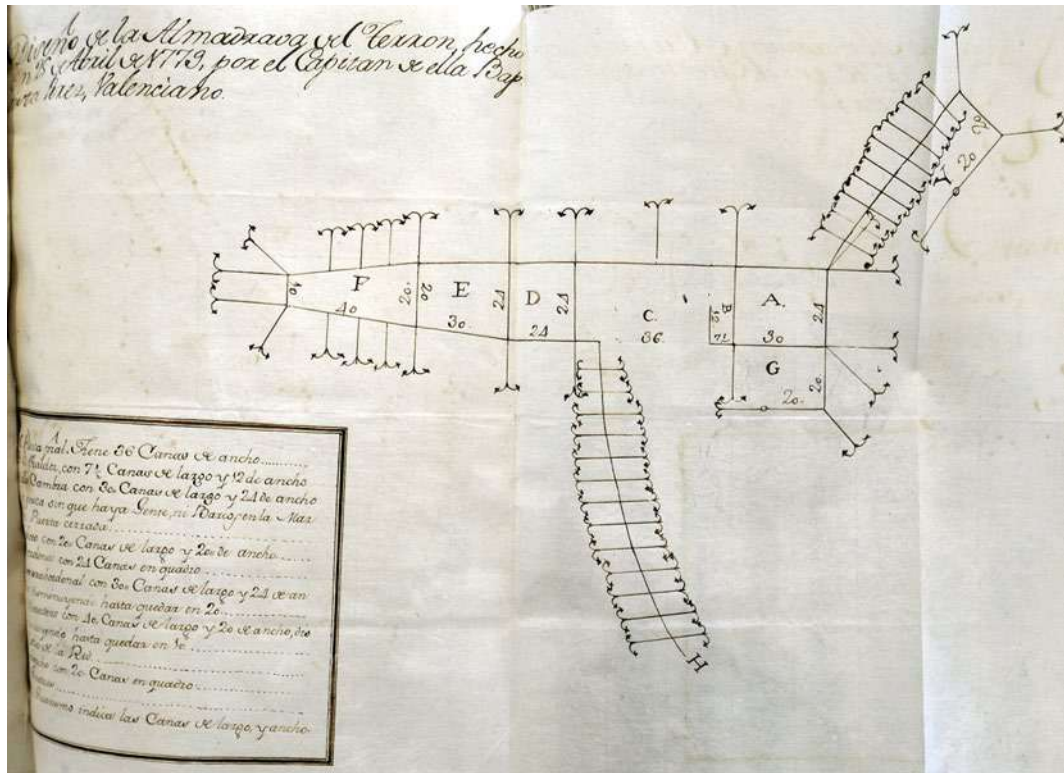 Digeño de la Almadrava del Terron, hecho
en 28 de Abril de 1773, por el Capitan de ella Bap
Perez, Valenciano.
20
20
Y
F
40
10
20.
20
E
30.
24
D
24
24
C
36.
B
12
7½
A.
30
24
G
20.
20.
H
Tiene 36 Canas de ancho
con 7½ Canas de largo y 12 de ancho
con 30 Canas de largo y 24 de ancho
sin que haya Gente, ni Barcos en la Mar
Puerta cerrada
con 20 Canas de largo y 20 de ancho
con 24 Canas en quadro
con 30 Canas de largo y 24 de an
hasta quedar en 20
con 40 Canas de largo y 20 de ancho, dis
hasta quedar en 10
de la Red
con 20 Canas en quadro
indica las Canas de largo, y ancho.